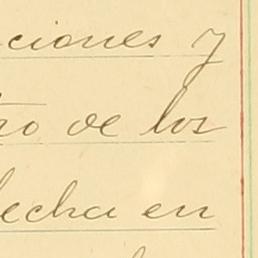 ciones y
ro de los
echa en